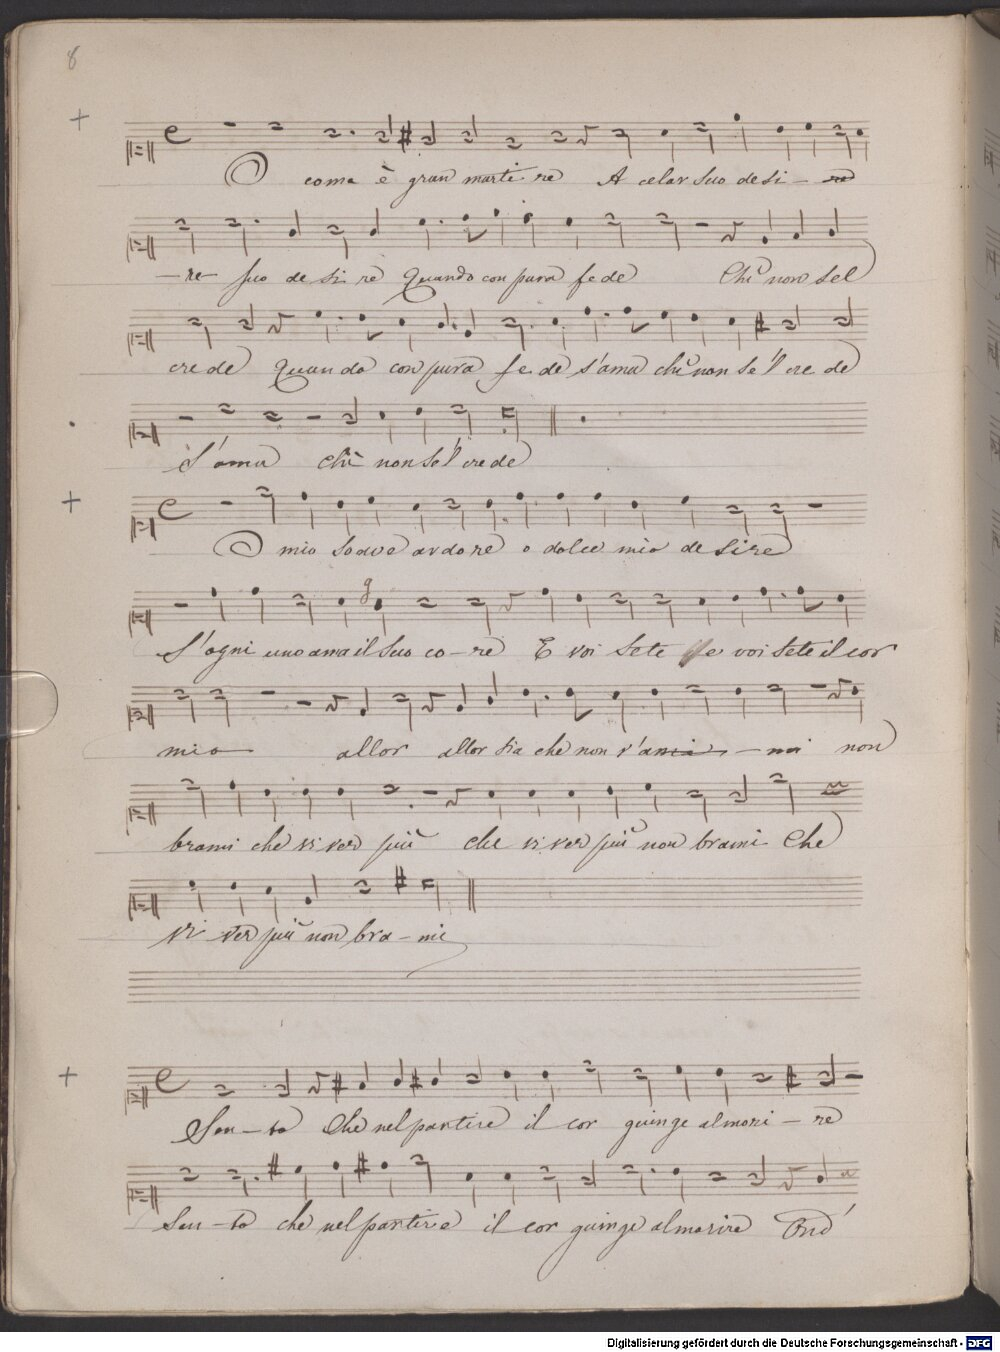 8
O come è gran martire A celar suo desi - re
- re suo desire Quando con pura fede Chi non sel
crede Quando con pura fede s'ama chi non se'l crede
S'ama chi non se'l crede
O mio soave ardore o dolce mio desire
S'ogni uno ama il suo co - re E voi sete e voi sete il cor
mio allor allor sia che non v'ami - mi non
brami che viver più che viver più non brami Che
vi ver più non bra - mi
Sen - to Che nel partire il cor guinge al mori - re
Sen - to che nel partire il cor guinge al morire Ond'
Digitalisierung gefördert durch die Deutsche Forschungsgemeinschaft - DFG